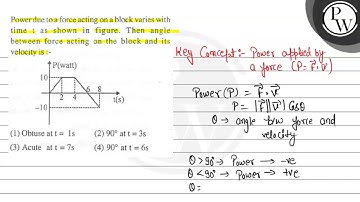 Power due to a force acting on a block varies with
time t as shown in figure. Then angle
between force acting on the block and its
velocity is :-
P(watt)
10
2 4 6 8
t(s)
-10
(1) Obtuse at t = 1s (2) 90° at t = 3s
(3) Acute at t = 7s (4) 90° at t = 6s
Key Concept:- Power applied by
a force (P = F⃗.V⃗)
Power (P) = F⃗.V⃗
P = |F⃗||V⃗| Cosθ
θ → angle b/w force and
velocity
θ > 90° → Power → -ve
θ < 90° → Power → +ve
θ =